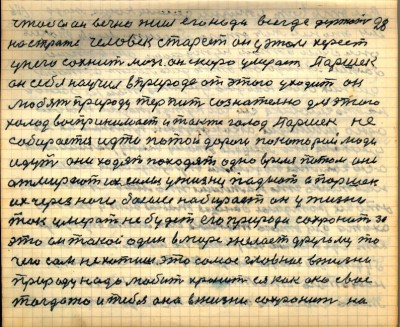 чтобы он вечно жил его надо всегда держать 28
на страже человек стареет он у этом худеет
у него сохнит мозг он скоро умирает Паршек
он себя научил в природе от этого уходит он
любят природу терпит сознательно для этого
холод воспринимает и также голод Паршек не
собирается идти по той дороги по которой люди
идут они ходят походят одно время потом они
отмирают их силы у жизни падают а Паршек
их через ноги больше набирает он у жизни
так умирать не будет его природа сохранит за
это он такой один в мире желает другому то
чего сам не хотишь это самое главное в жизни
природу надо любить хранить ея как око свое
тогда то и тебя она в жизни сохранит на